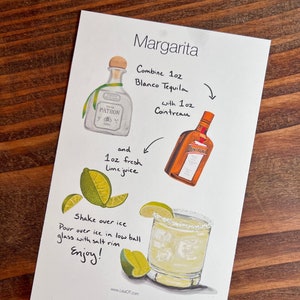 Margarita
Combine 1oz
Blanco Tequila
with 1oz
Cointreau
PATRÓN
and
1oz fresh
lime juice
Shake over ice
Pour over ice in low ball
glass with salt rim
Enjoy!